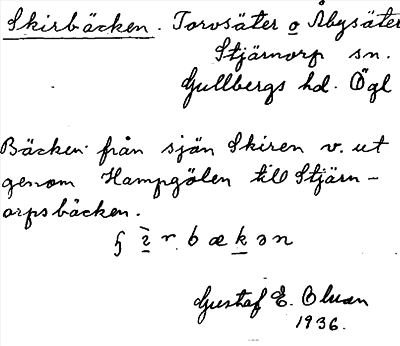 Skirbäcken. Torvsäter o Åbysäter
Stjärnorp sn.
Gullbergs hd. Ögl
Bäcken från sjön Skiren v. ut
genom Hampgölen till Stjärn-
orpsbäcken.
Gustaf E. Bluan
1936.